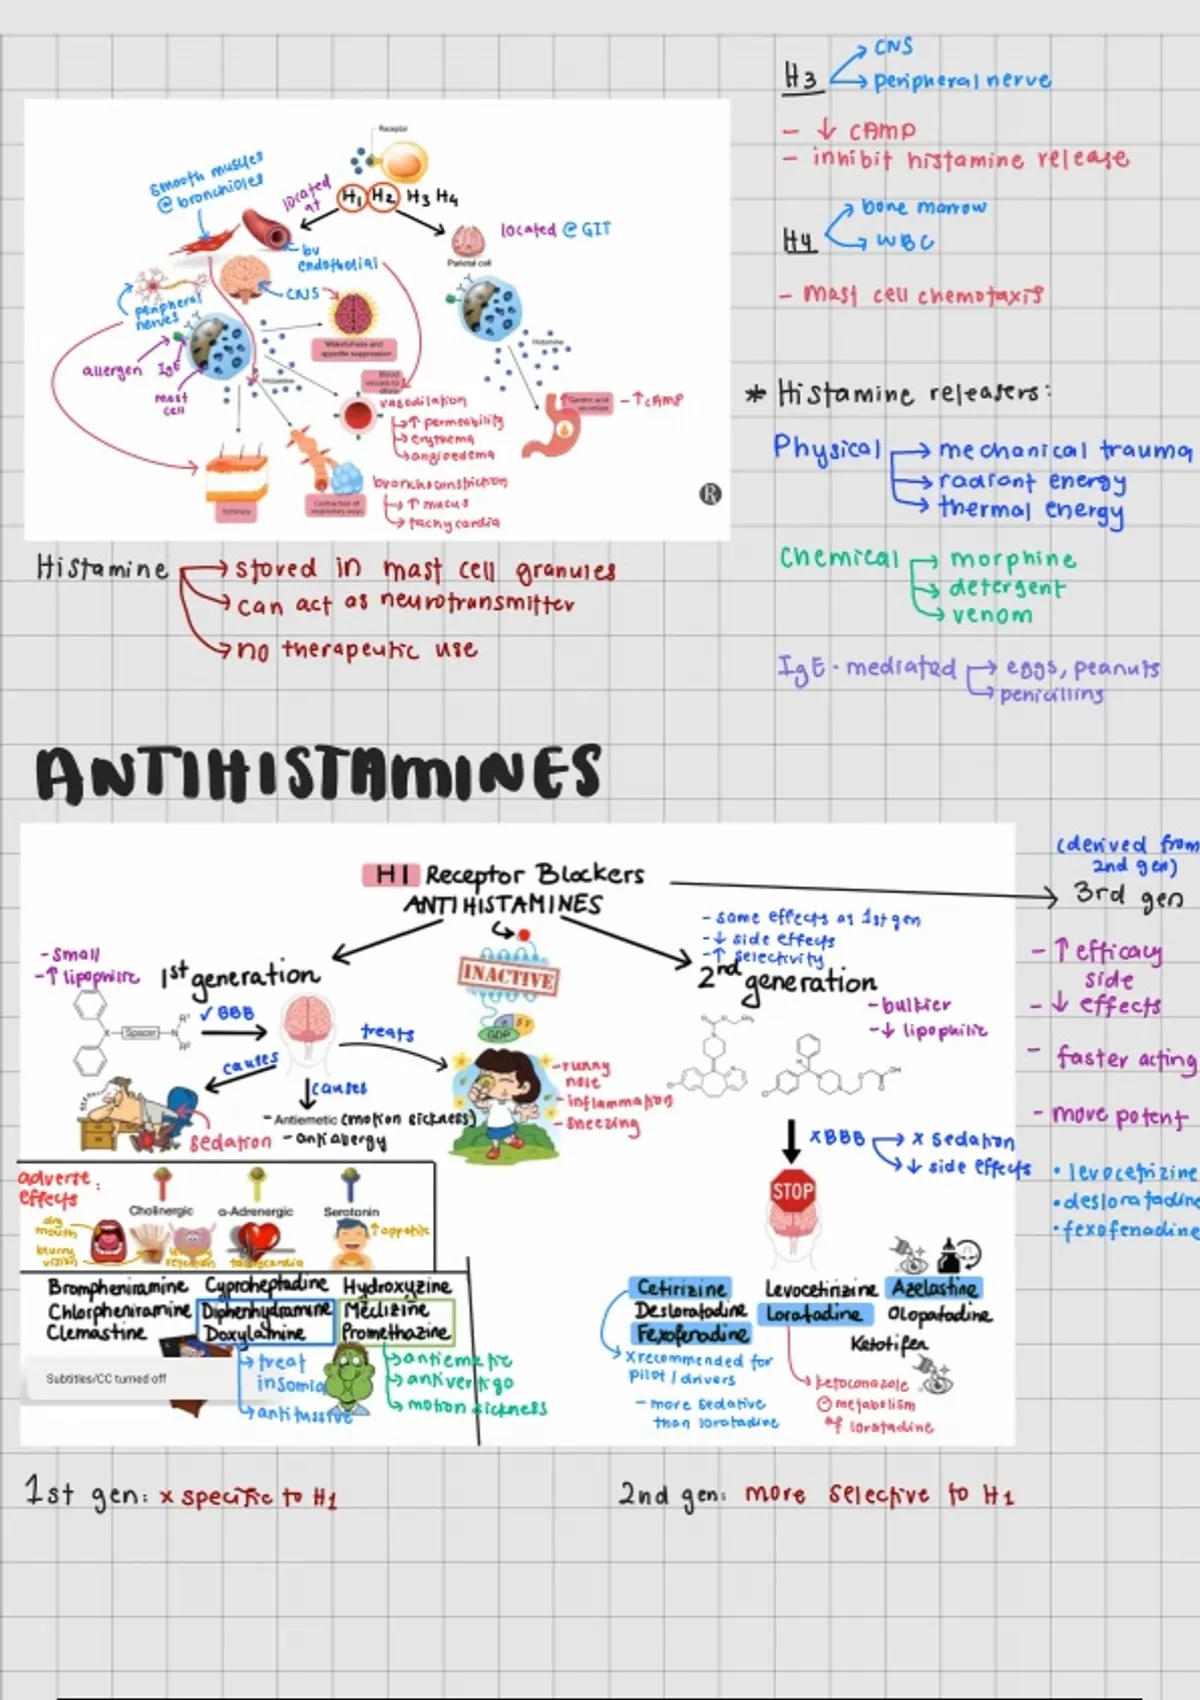 H3
CNS
peripheral nerve
- ↓ cAmp
- inhibit histamine release
H4
bone marrow
WBC
- mast cell chemotaxis
Receptor
smooth muscles
@ bronchioles
located
at
H1 H2 H3 H4
located @ GIT
Parietal cell
bv
endothelial
CNS
peripheral
nerves
allergen
IgE
mast
cell
Histamine
Histamine
Wakefulness and
appetite suppression
Blood
vessels to
dilate
vasodilation
↑ permeability
erythema
angioedema
↑ Gastric acid
secretion
- ↑ cAMP
bronchoconstriction
↑ mucus
tachycardia
Contraction of
respiratory ways
R
* Histamine releasers:
Physical
mechanical trauma
radiant energy
thermal energy
Chemical
morphine
detergent
venom
IgE-mediated
eggs, peanuts
penicilling
Histamine
stored in mast cell granules
can act as neurotransmitter
no therapeutic use
ANTIHISTAMINES
H1 Receptor Blockers
ANTIHISTAMINES
(derived from
2nd gen)
3rd gen
- ↑ efficacy
- ↓ side effects
- faster acting
- more potent
• levocetrizine
• desloratadine
• fexofenadine
- small
- ↑ lipophilic
1st generation
Spacer
R1
R2
✓ BBB
causes
causes
treats
sedation
- Antiemetic (motion sickness)
- antiallergy
INACTIVE
GDP
β γ
- runny
nose
- inflammation
- sneezing
- same effects as 1st gen
- ↓ side effects
- ↑ selectivity
2nd generation
- bulkier
- ↓ lipophilic
x BBB
x sedation
↓ side effects
STOP
adverse
effects:
Cholinergic
α-Adrenergic
Serotonin
dry
mouth
blurry
vision
urinary
retention
tachycardia
↑ appetite
Brompheniramine
Cyproheptadine
Hydroxyzine
Chlorpheniramine
Diphenhydramine
Meclizine
Clemastine
Doxylamine
Promethazine
treat
insomia
antitussive
antiemetic
antivertigo
motion sickness
Subtitles/CC turned off
Cetirizine
Levocetirizine
Azelastine
Desloratadine
Loratadine
Olopatadine
Fexofenadine
Ketotifen
x recommended for
pilot / drivers
- more sedative
than loratadine
ketoconazole
⊖ metabolism
of loratadine
1st gen: x specific to H1
2nd gen: more selective to H1